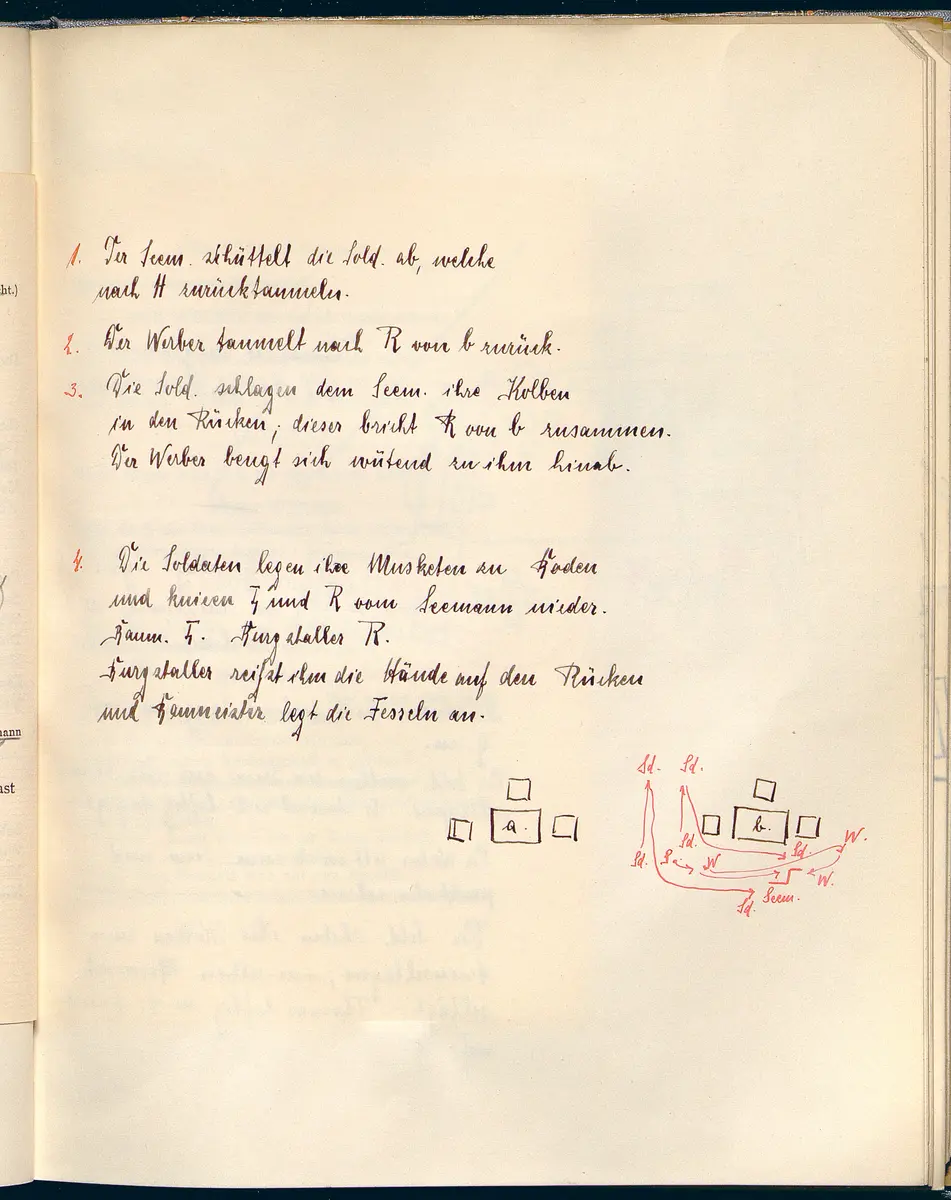 ht.)
1. Der Seem. schüttelt die Sold. ab, welche
nach H zurücktaumeln.
2. Der Werber taumelt nach R von b zurück.
3. Die Sold. schlagen dem Seem. ihre Kolben
in den Rücken, dieser bricht R von b zusammen.
Der Werber beugt sich wütend zu ihm hinab.
4. Die Soldaten legen ihre Musketen zu Boden
und knieen L und R vom Seemann nieder.
Baum. L. Burgstaller R.
Burgstaller reißt ihm die Hände auf den Rücken
und legt die Fesseln an.
ann
st
Sd. Sd.
a. b.
Sd. Sd. W. Sd. W.
W.
Seem.
Sd.